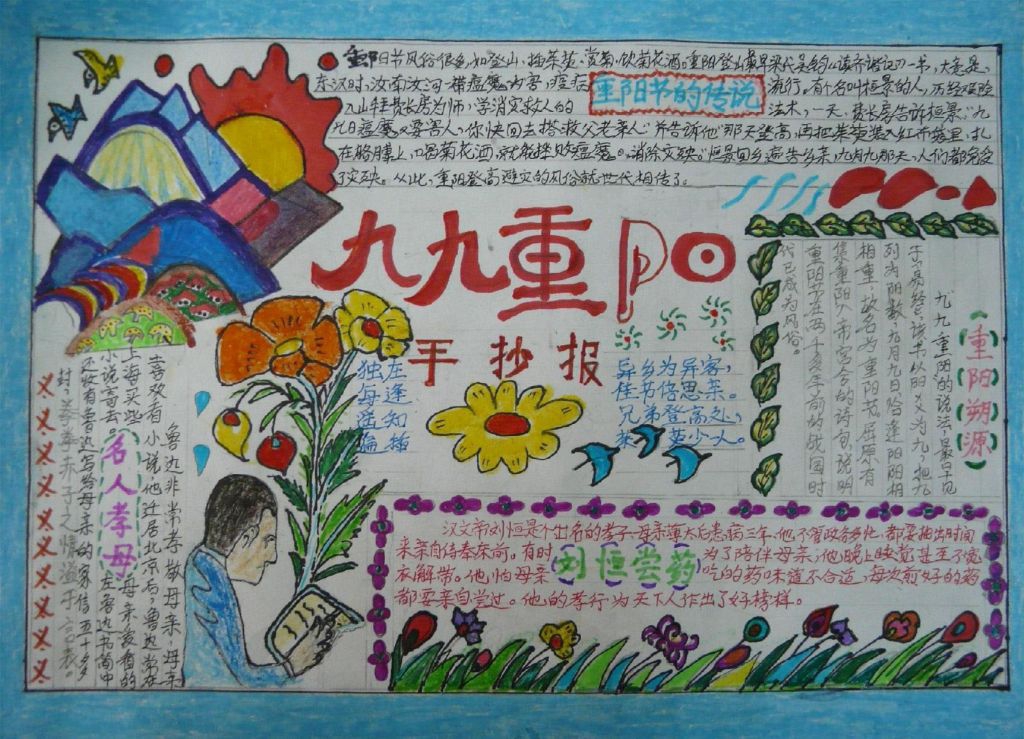 重阳节风俗很多,如登山,插茱萸,赏菊,饮菊花酒。重阳登山最早来代吴钧《读齐谐记》一书,大意是,
东汉时,汝南汝河一带瘟魔为害,疫病
流行。有个名叫恒景的人,历经艰险
入山拜费长房为师,学消灾救人的
法术,一天,费长房告诉恒景:“九
重阳节的传说
九日瘟魔又要害人,你快回去搭救父老亲人”并告诉他“那天登高,再把茱萸装入红布袋里,扎
在胳膊上,喝菊花酒,就能挫败瘟魔。消除灾殃。”恒景回乡遍告乡亲,九月九那天,人们都免受
了灾殃。从此,重阳登高避灾的风俗就世代相传了。
九九重阳
手抄报
独在异乡为异客,
每逢佳节倍思亲。
遥知兄弟登高处,
遍插茱萸少一人。
重阳朔源
九九重阳的说法,最早见
于《易经》,该书以阳爻为九,把九
列为阳数,九月九日恰逢阳阳相
相重,故名为重阳节。屈原有
集重阳入帝宫今的诗句,说明
重阳节在两千多年前的战国时
代已成为风俗。
名人孝母
鲁迅非常孝敬母亲,母亲
喜欢看小说,他迁居北京后,鲁迅常在
上海买些母亲爱看的
小说寄去。在鲁迅书简中
还收有鲁迅写给母亲的家信五十多
封,拳拳赤子之情溢于言表。
汉文帝刘恒是个出名的孝子,母亲薄太后患病三年,他不管政务多忙,都要抽出时间
来亲自侍奉床前。有时
为了陪伴母亲,他晚上睡觉甚至不宽
刘恒尝药
衣解带。他怕母亲
吃的药味道不合适,每次煎好的药
都要亲自尝过。他的孝行为天下人作出了好榜样。